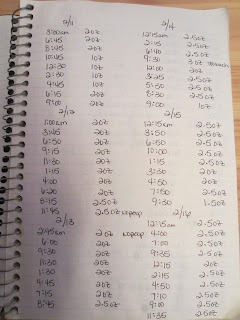 2/11
3:00am 2oz
6:45 2oz
8:45 2oz
10:45 1oz
12:30 1oz
2:30 1oz
4:45 1oz
6:15 2oz
9:00 2oz
2/12
1:00am 2oz
3:45 2oz
6:50 2oz
9:15 2oz
11:30 2oz
1:15 2oz
4:00 2oz
6:20 2oz
8:15 2.5oz
11:45 2.5oz
2/13
2:45am 2oz
6:00 2oz
9:30 2oz
11:30 2oz
1:30 2oz
4:45 2oz
7:15 2oz
8:45 2.5oz
2/14
12:15am 2.5oz
2:15 2.5oz
6:40 2.5oz
9:30 3oz
12:00 2oz
3:25 2.5oz
5:50 2.5oz
8:30 2.5oz
9:00 1oz
2/15
12:15am 2.5oz
3:50 2.5oz
6:40 2.5oz
10:00 2.5oz
1:15 2.5oz
3:30 2oz
4:50 2oz
7:50 2.5oz
9:30 1.5oz
2/16
12:15am 2.5oz
4:00 2.5oz
7:00 2.5oz
9:35 2.5oz
12:15 2oz
2:15 2oz
4:50 2.5oz
7:10 2.5oz
9:00 2oz
11:35 2.5oz